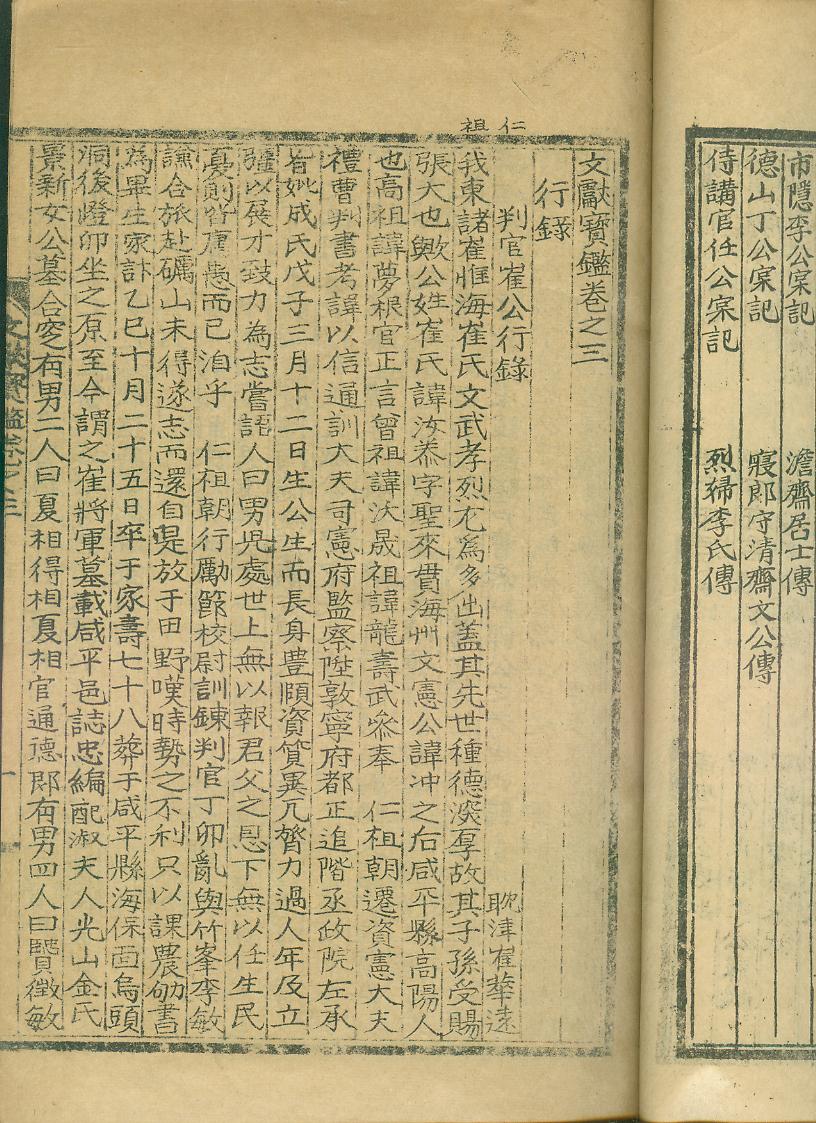 市隱李公家記 澹齋居士傳
德山丁公家記 寢郎守淸齋文公傳
侍講官任公家記 烈婦李氏傳
仁
祖
文獻寶鑑卷之三
行錄
判官崔公行錄
耽津崔華遠
我東諸崔惟海崔氏文武孝烈尤爲多出蓋其先世種德深厚故其子孫受賜
張大也歟公姓崔氏諱汝恭字聖來貫海州文憲公諱冲之后咸平縣高陽人
也高祖諱夢根官正言曾祖諱汰晟祖諱龍壽武叅奉 仁祖朝遷資憲大夫
禮曹判書考諱以信通訓大夫司憲府監察陞敦寧府都正追階丞政院左承
旨妣成氏戊子三月十二日生公生而長身豊頤資質異凡膂力過人年及立
疆以展才致力為志嘗語人曰男兒處世上無以報君父之恩下無以任生民
憂則皆庸愚而已洎乎 仁祖朝行勵節校尉訓鍊判官丁卯亂與竹峯李敏
諫合旅赴礪山未得遂志而還自是放于田野嘆時勢之不利只以課農劬書
為畢生家計乙巳十月二十五日卒于家壽七十八葬于咸平縣海保面烏頭
洞後燈卯坐之原至今謂之崔將軍墓載咸平邑誌忠編配淑夫人光山金氏
景新女公墓合窆有男二人曰夏相得相夏相官通德郞有男四人曰贇徵敏
文獻寶鑑卷之三
一